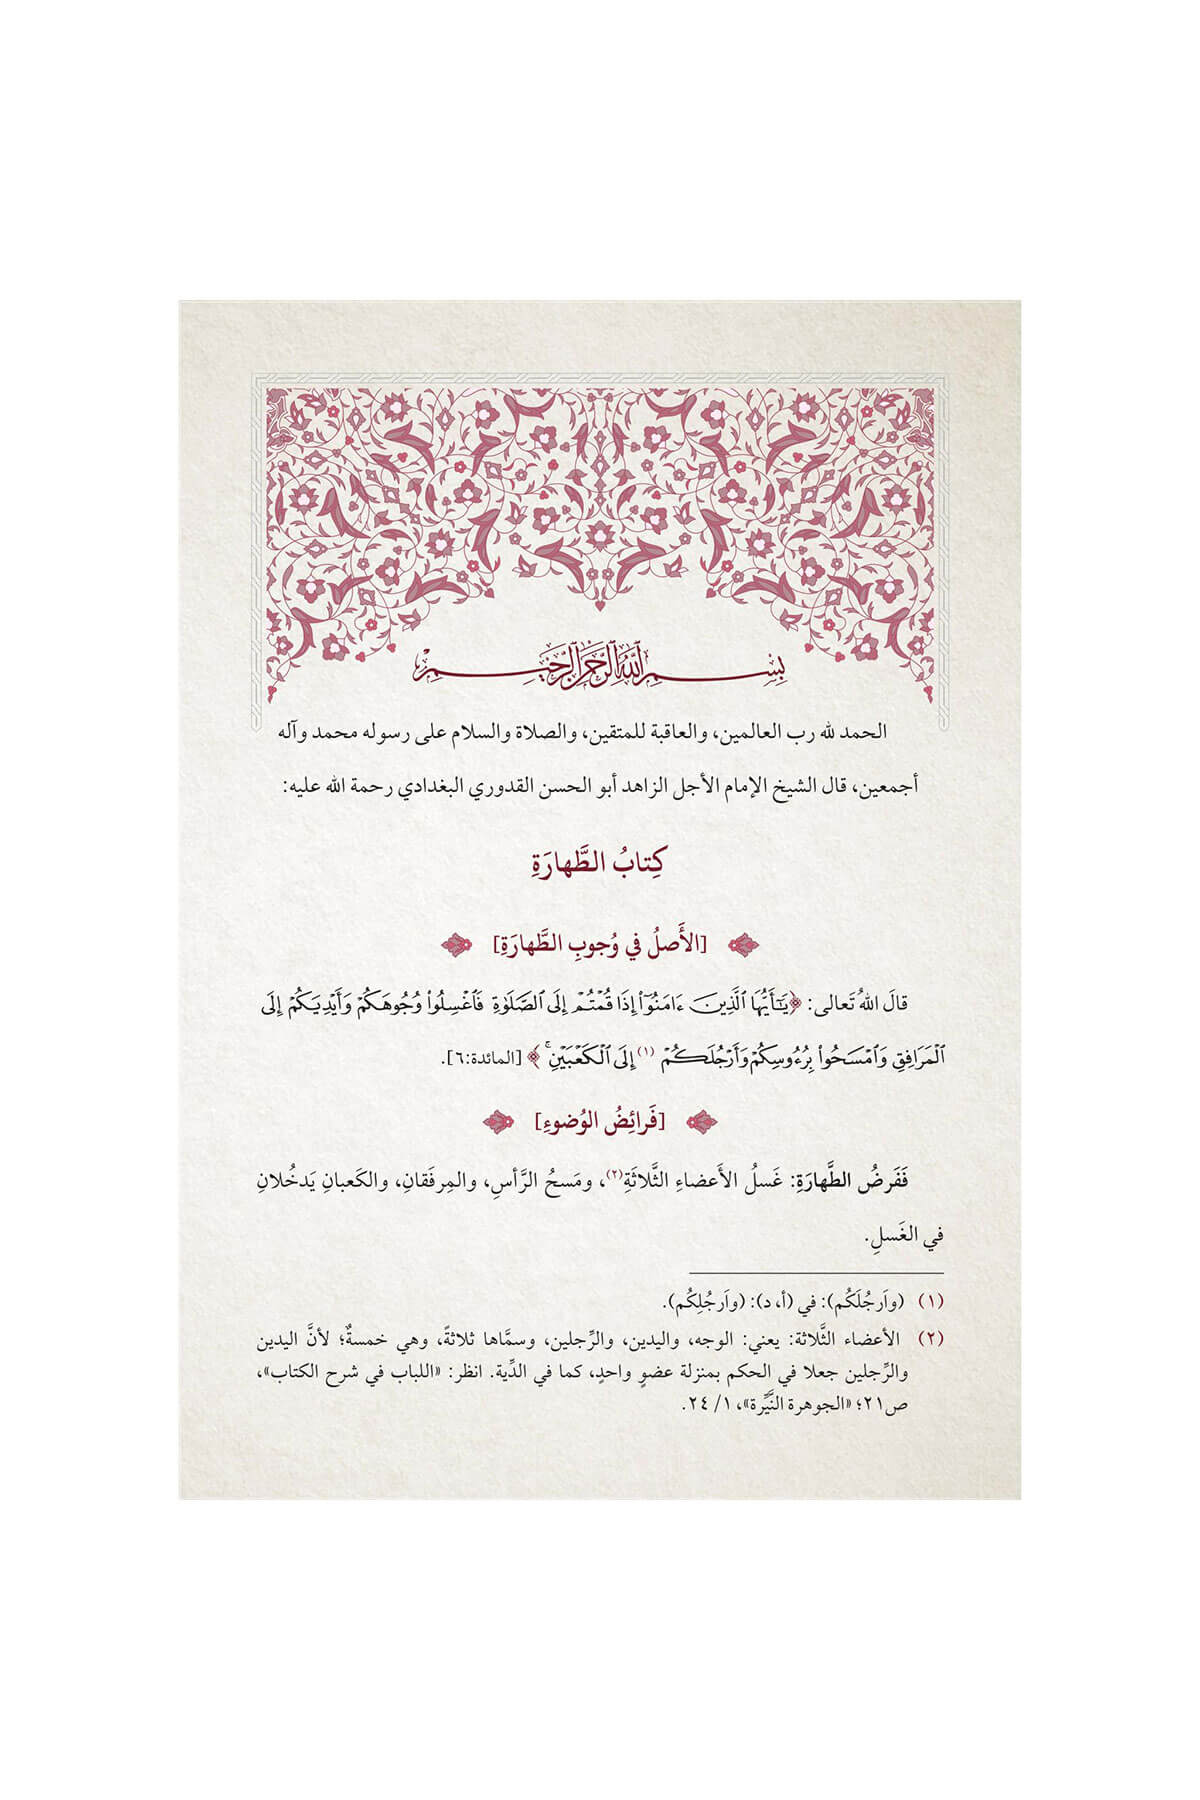 بِسْمِ اللَّهِ الرَّحْمَٰنِ الرَّحِيمِ
الحمد لله رب العالمين، والعاقبة للمتقين، والصلاة والسلام على رسوله محمد وآله
أجمعين، قال الشيخ الإمام الأجل الزاهد أبو الحسن القدوري البغدادي رحمة الله عليه:
كِتابُ الطَّهارَةِ
[الأَصلُ في وُجوبِ الطَّهارَةِ]
قالَ اللهُ تَعالى: ﴿يَٰٓأَيُّهَا ٱلَّذِينَ ءَامَنُوٓا۟ إِذَا قُمْتُمْ إِلَى ٱلصَّلَوٰةِ فَٱغْسِلُوا۟ وُجُوهَكُمْ وَأَيْدِيَكُمْ إِلَى
ٱلْمَرَافِقِ وَٱمْسَحُوا۟ بِرُءُوسِكُمْ وَأَرْجُلَكُمْ (١) إِلَى ٱلْكَعْبَيْنِ ۚ﴾ [المائدة:٦].
[فَرائِضُ الوُضوءِ]
فَفَرضُ الطَّهارَةِ: غَسلُ الأَعضاءِ الثَّلاثَةِ(٢)، ومَسحُ الرَّأسِ، والمِرفَقانِ، والكَعبانِ يَدخُلانِ
في الغَسلِ.
(١) (واَرجُلَكُم): في (أ، د): (واَرجُلِكُم).
(٢) الأعضاء الثَّلاثة: يعني: الوجه، واليدين، والرِّجلين، وسمَّاها ثلاثةً، وهي خمسةٌ؛ لأنَّ اليدين
والرِّجلين جعلا في الحكم بمنزلة عضوٍ واحدٍ، كما في الدِّية. انظر: «اللباب في شرح الكتاب»،
ص٢١؛ «الجوهرة النَّيِّرة»، ١/ ٢٤.